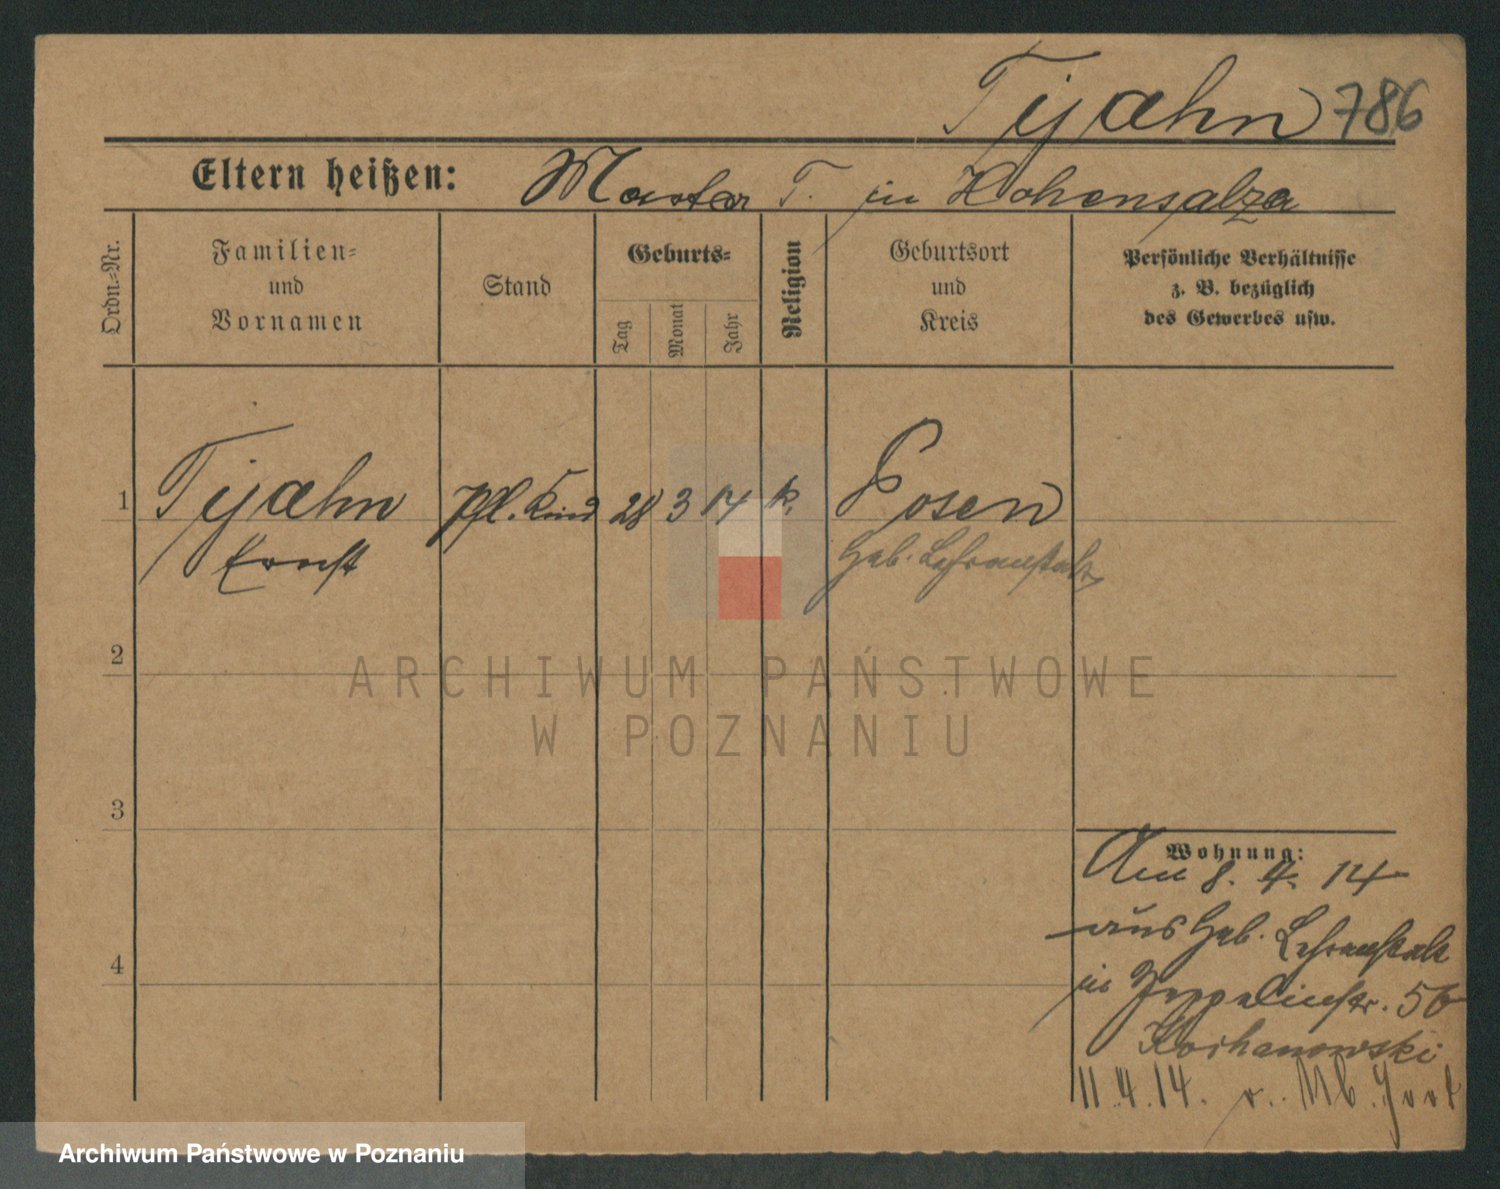 Tijahn 786
Eltern heißen: Mutter T. in Hohensalza
Ordn.=Nr.
Familien=
und
Vornamen
Stand
Geburts=
Tag
Monat
Jahr
Religion
Geburtsort
und
Kreis
Persönliche Verhältnisse
z. B. bezüglich
des Gewerbes usw.
1 Tijahn Pfl. Kind 28 3 14 k. Posen
Ernst Heb. Lehranstalt
2
ARCHIWUM PAŃSTWOWE
W POZNANIU
3
Wohnung:
Am 8. 4. 14
aus Heb. Lehranstalt
4
in Zeppelinstr. 5
Kochanowski
11.4.14. v.
Archiwum Państwowe w Poznaniu